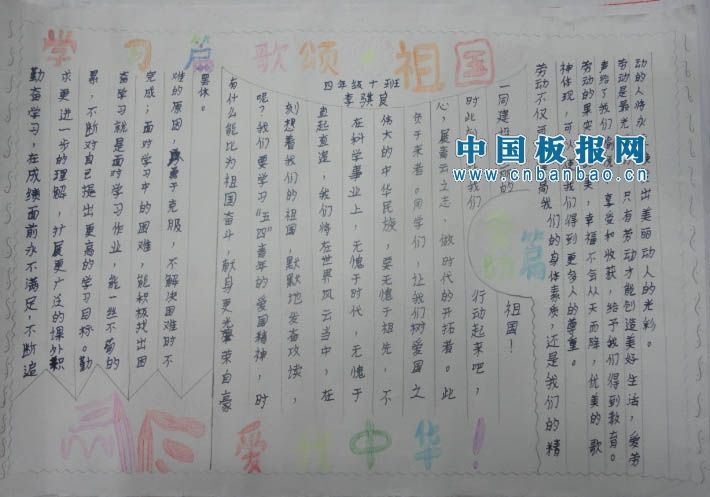 学习篇 歌颂·祖国
四年级十班
李骐良
勤奋学习,在成绩面前永不满足,不断追
求更进一步的理解,扩展更广泛的课外积
累,不断对自己提出更高的学习目标。勤
奋学习就是面对学习作业,能一丝不苟的
完成;面对学习中的困难,能积极找出困
难的原因,勇于克服,不解决困难时不
罢休。
有什么能比为祖国奋斗,献身更光荣自豪
呢?我们要学习“五四”青年的爱国精神,时
刻想着我们的祖国,默默地发奋攻读,
直起直追,我们将在世界风云当中,在
在科学事业上,无愧于时代,无愧于
伟大的中华民族,要无愧于祖先,不
负于来者。同学们,让我们树爱国之
心,展青云之志,做时代的开拓者。此
时此刻 我们 行动起来吧,
一同建设 的 祖国!
篇
劳动不仅可 高我们的身体素质,还是我们的精
神体现,可 我们得到更多人的尊重。
劳动的果实 美,幸福不会从天而降,优美的歌
声给了我们 享受和收获,给予我们得到教育。
劳动是最光 只有劳动才能创造美好生活,爱劳
动的人将永 出美丽动人的光彩。
中国板报网
www.cnbanbao.cn
爱我中华!